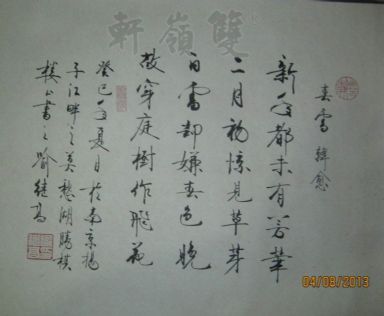 雙嶺軒
春雪 韓愈
新年都未有芳華
二月初惊見草芽
白雪却嫌春色晚
故穿庭樹作飛花
癸巳年夏月於南京揚
子江畔之莫愁湖勝棋
樓 書之
04/08/2013